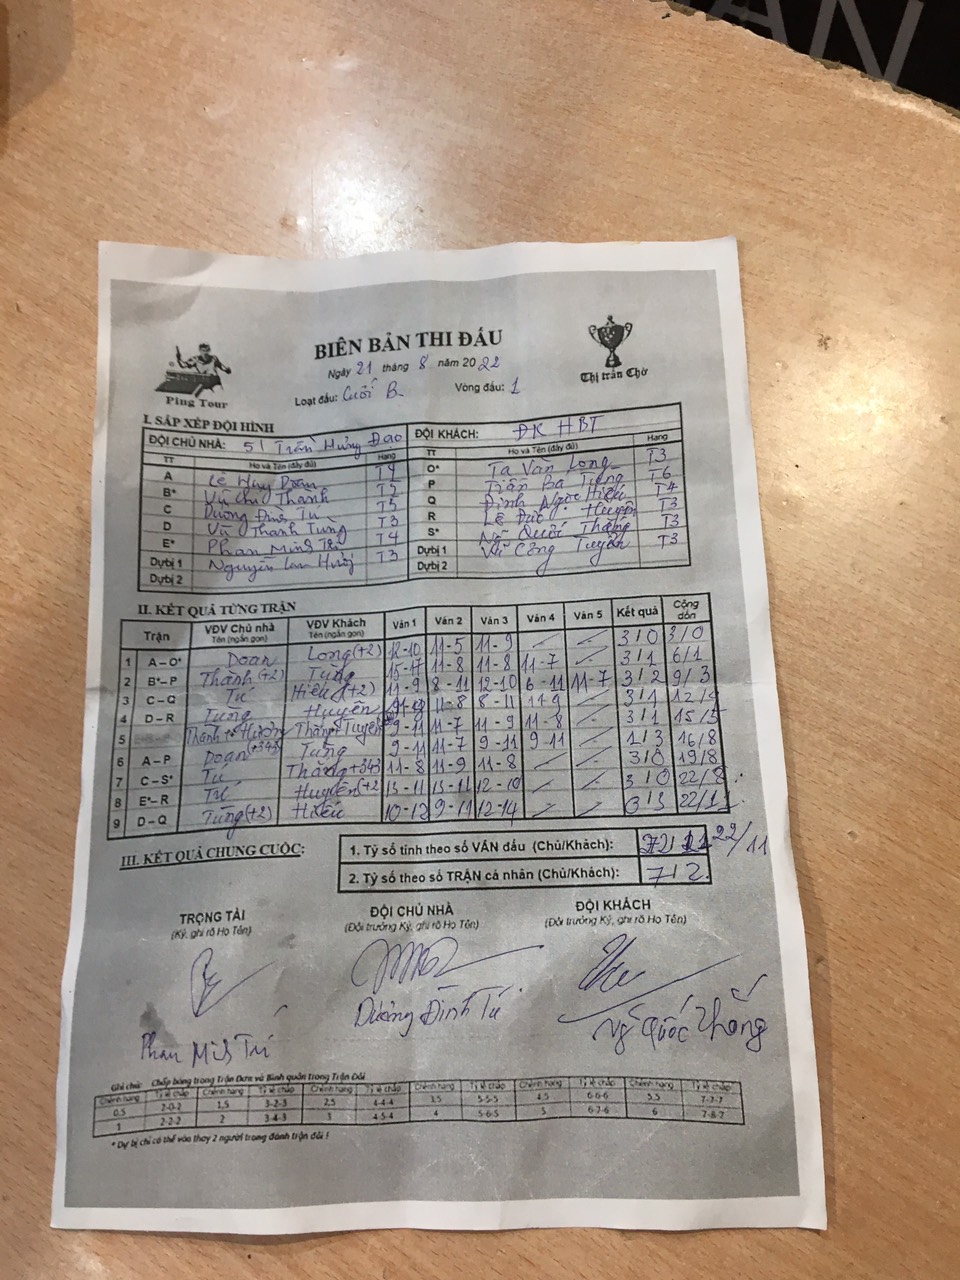 AN
BIÊN BẢN THI ĐẤU
Ngày 21 tháng 8 năm 2022
Ping Tour
Loạt đấu: Cuối B Vòng đấu: 1
Thị trấn Chờ
I. SẮP XẾP ĐỘI HÌNH
ĐỘI CHỦ NHÀ: 51 Trần Hưng Đạo ĐỘI KHÁCH: ĐK HBT
TT Họ và Tên (đầy đủ) Hạng TT Họ và Tên (đầy đủ) Hạng
A Lê Huy Doan T4 O* Tạ Văn Long T3
B* Vũ Chí Thành T5 P Trần Ba Tùng T6
C Dương Đình Tú T5 Q Đinh Ngọc Hiếu T4
D Vũ Thanh Tùng T3 R Lê Đức Huyên T3
E* Phan Minh Trí T4 S* Ngô Quốc Thắng T3
Dự bị 1 Nguyễn Lan Hương T3 Dự bị 1 Vũ Công Tuyên T3
Dự bị 2 Dự bị 2
II. KẾT QUẢ TỪNG TRẬN
Trận VĐV Chủ nhà Tên (ngắn gọn) VĐV Khách Tên (ngắn gọn) Ván 1 Ván 2 Ván 3 Ván 4 Ván 5 Kết quả Cộng dồn
1 A – O* Doan Long (+2) 12-10 11-5 11-9 3/0 3/0
2 B* – P Thành (+2) Tùng 15-17 11-8 11-8 11-7 3/1 6/1
3 C – Q Tú Hiếu (+2) 11-9 8-11 12-10 6-11 11-7 3/2 9/3
4 D – R Tùng Huyên 11-8 8-11 11-9 3/1 12/4
5 Thành + Hương Thắng Tuyên 9-11 11-7 11-9 11-8 3/1 15/5
6 A – P Doan (+343) Tùng 9-11 11-7 9-11 9-11 1/3 16/8
7 C – S* Tú Thắng +343 11-8 11-9 11-8 3/0 19/8
8 E* – R Trí Huyên (+2 13-11 13-11 12-10 3/0 22/8
9 D – Q Tùng (+2) Hiếu 10-12 9-11 12-14 0/3 22/11
III. KẾT QUẢ CHUNG CUỘC:
1. Tỷ số tính theo số VÁN đấu (Chủ/Khách): 22/11
2. Tỷ số theo số TRẬN cá nhân (Chủ/Khách): 7/2
TRỌNG TÀI ĐỘI CHỦ NHÀ ĐỘI KHÁCH
(Ký, ghi rõ Họ Tên) (Đội trưởng Ký, ghi rõ Họ Tên) (Đội trưởng Ký, ghi rõ Họ Tên)
Phan Minh Trí Dương Đình Tú Ngô Quốc Thắng
Ghi chú: Chấp bóng trong Trận Đơn và Bình quân trong Trận Đôi
Chênh hạng Tỷ lệ chấp Chênh hạng Tỷ lệ chấp Chênh hạng Tỷ lệ chấp Chênh hạng Tỷ lệ chấp Chênh hạng Tỷ lệ chấp Chênh hạng Tỷ lệ chấp
0,5 2-0-2 1,5 3-2-3 2,5 4-4-4 3,5 5-5-5 4,5 6-6-6 5,5 7-7-7
1 2-2-2 2 3-4-3 3 4-5-4 4 5-6-5 5 6-7-6 6 7-8-7
* Dự bị chỉ có thể vào thay 2 người trong đánh trận đôi !